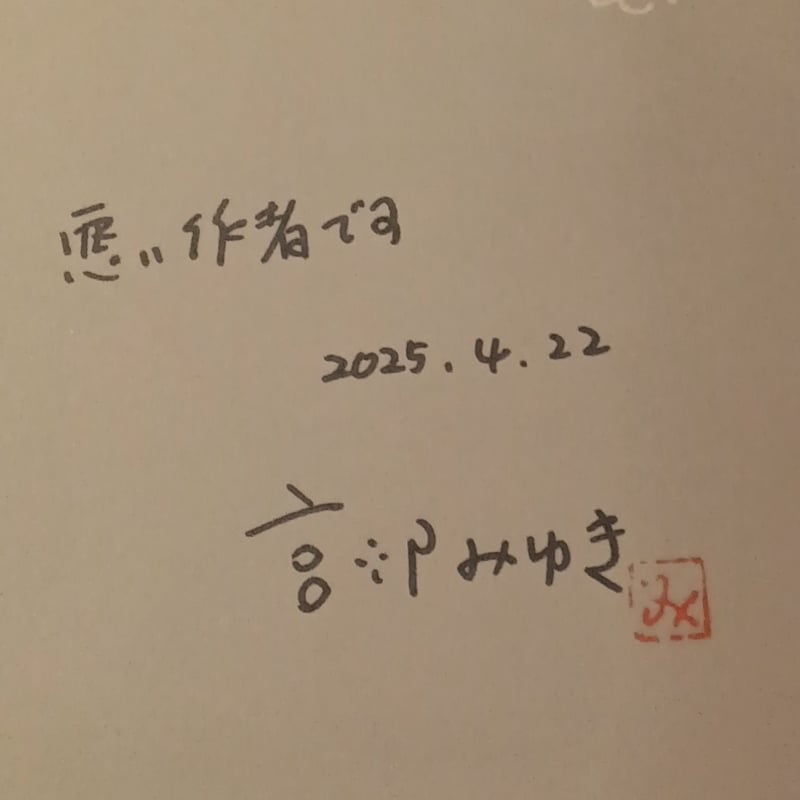 悪い作者です
2025.4.22
宮部みゆき